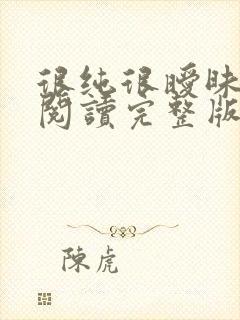 很純很曖昧
閱讀完整版
陳虎